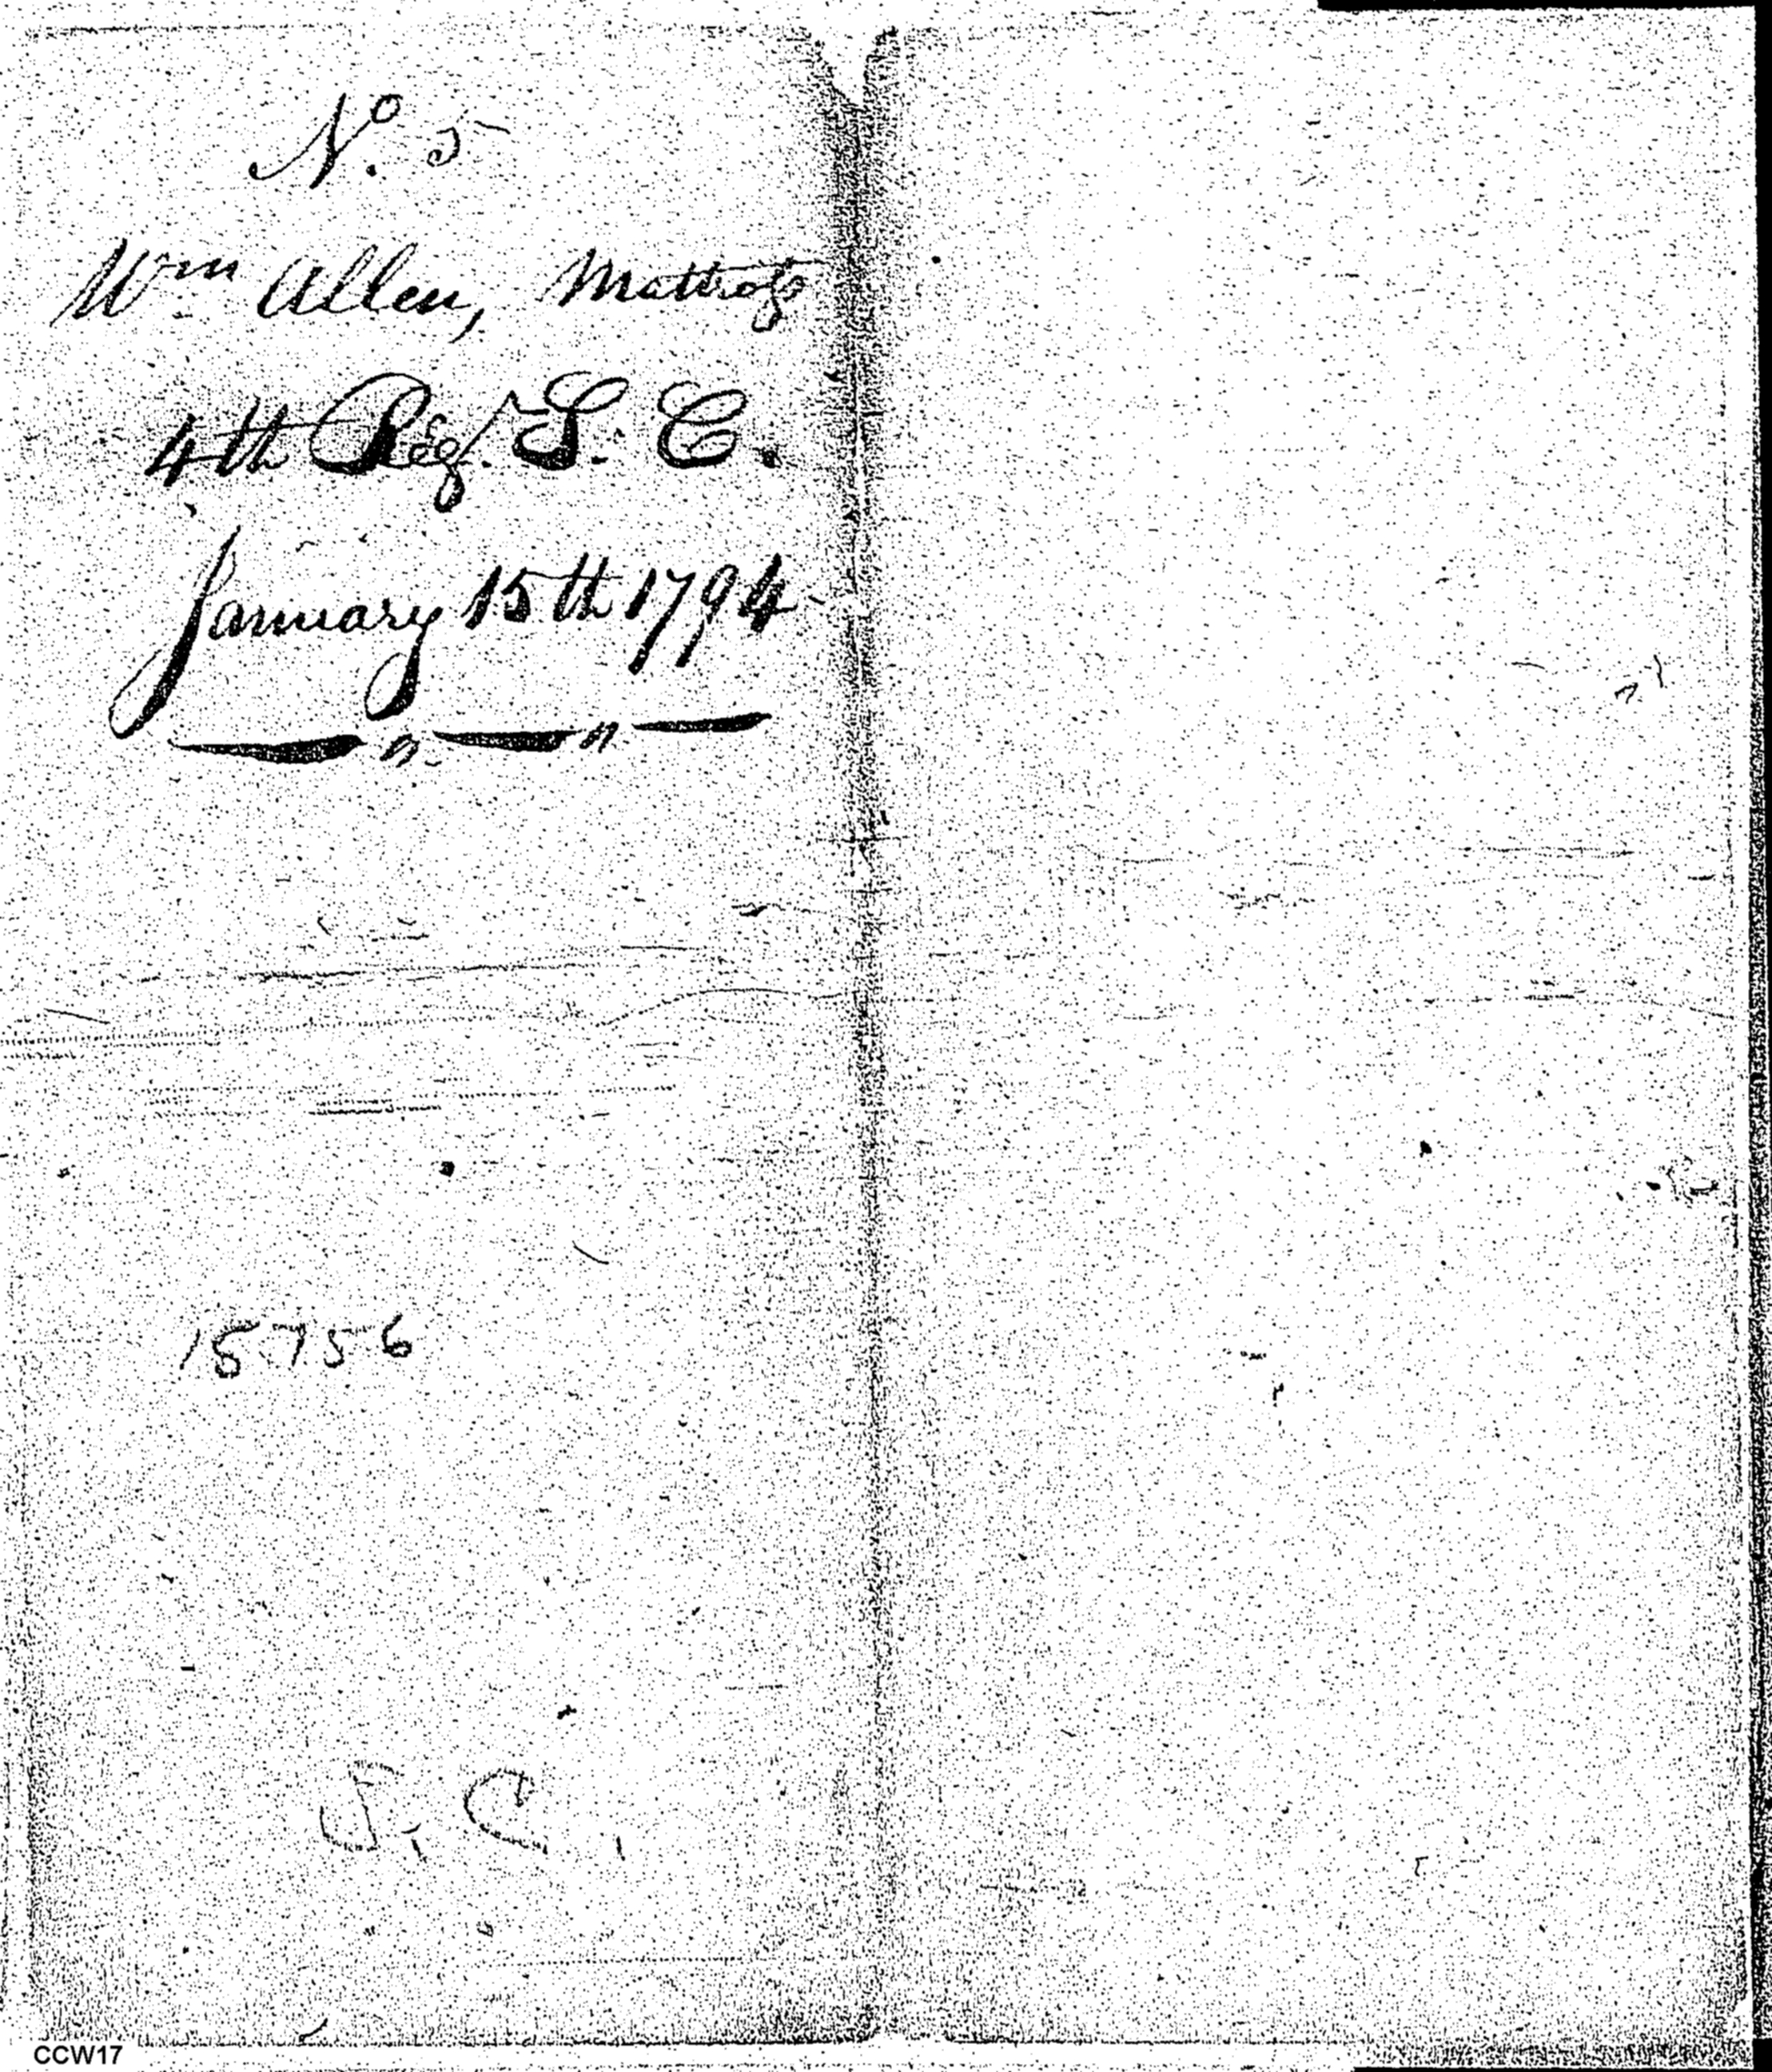 No. 5
Wm Allen, Mattross
4th Reg. S. C.
January 15th 1794
15756
S. C.
CCW17